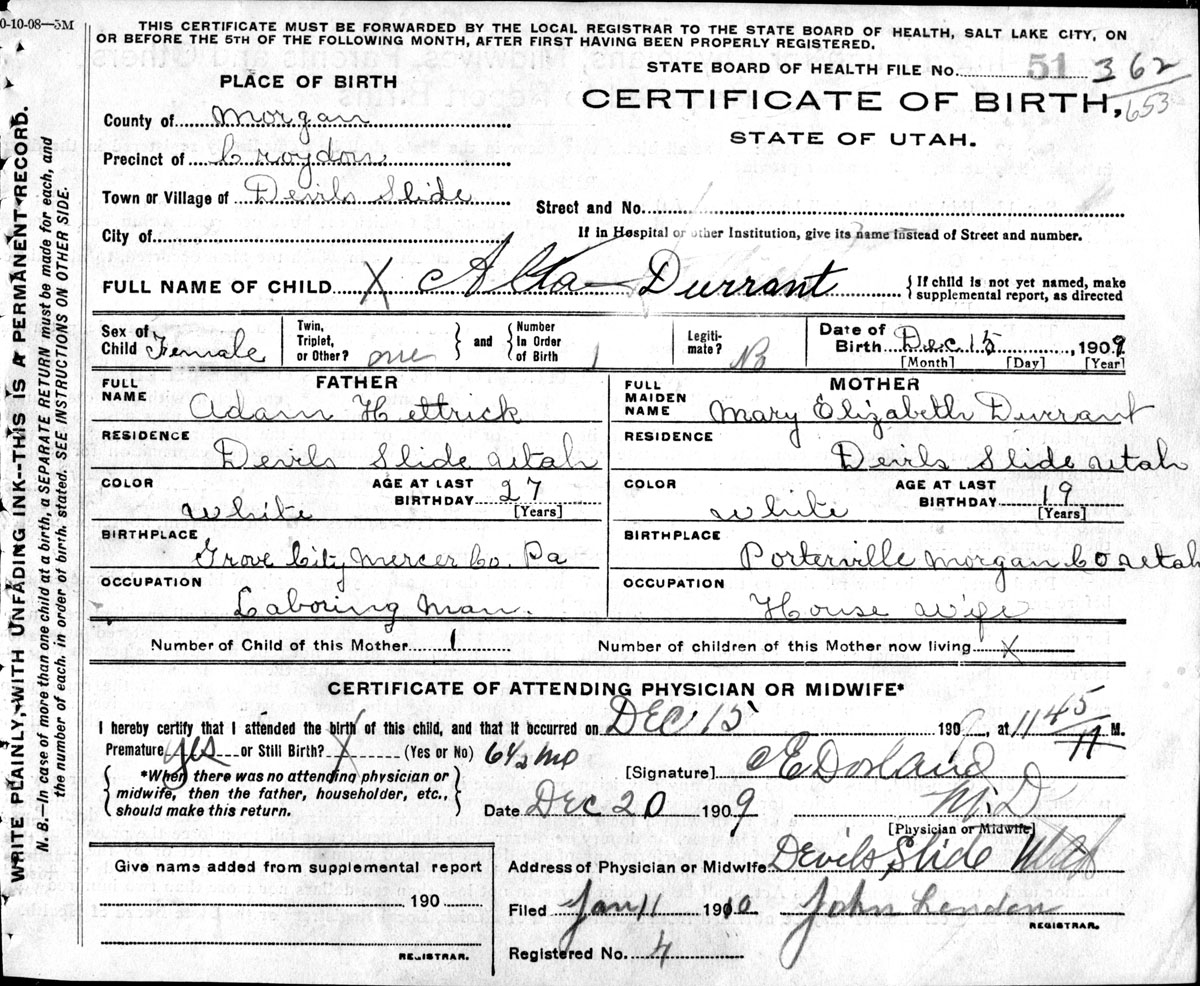 0-10-08—3M
THIS CERTIFICATE MUST BE FORWARDED BY THE LOCAL REGISTRAR TO THE STATE BOARD OF HEALTH, SALT LAKE CITY, ON
OR BEFORE THE 5TH OF THE FOLLOWING MONTH, AFTER FIRST HAVING BEEN PROPERLY REGISTERED.
STATE BOARD OF HEALTH FILE No. 51 362
653
PLACE OF BIRTH
CERTIFICATE OF BIRTH,
STATE OF UTAH.
County of Morgan
Precinct of Croydon
Town or Village of Devils Slide
Street and No.
City of
If in Hospital or other Institution, give its name instead of Street and number.
FULL NAME OF CHILD X Alta Durrant { If child is not yet named, make
supplemental report, as directed
Sex of Child Female
Twin, Triplet, or Other? one } and { Number In Order of Birth 1
Legiti-mate? No
Date of Birth Dec 15, 1909
[Month] [Day] [Year]
FATHER
FULL NAME Adam Hettrick
RESIDENCE Devils Slide Utah
COLOR White AGE AT LAST BIRTHDAY 27 [Years]
BIRTHPLACE Grove City Mercer Co. Pa
OCCUPATION Laboring Man.
MOTHER
FULL MAIDEN NAME Mary Elizabeth Durrant
RESIDENCE Devils Slide Utah
COLOR White AGE AT LAST BIRTHDAY 19 [Years]
BIRTHPLACE Porterville Morgan Co Utah
OCCUPATION House Wife
Number of Child of this Mother 1 Number of children of this Mother now living X
CERTIFICATE OF ATTENDING PHYSICIAN OR MIDWIFE*
I hereby certify that I attended the birth of this child, and that it occurred on DEC 15 1909, at 11 45 M.
Premature yes or Still Birth? X (Yes or No) 6½ mo
{ *When there was no attending physician or
midwife, then the father, householder, etc.,
should make this return. }
[Signature]
M.D.
[Physician or Midwife]
Date Dec 20 1909
Address of Physician or Midwife Devils Slide Utah
Give name added from supplemental report
190
REGISTRAR.
Filed Jan 11 1910 John
REGISTRAR.
Registered No. 4
WRITE PLAINLY, WITH UNFADING INK--THIS IS A PERMANENT RECORD.
N. B.—In case of more than one child at a birth, a SEPARATE RETURN must be made for each, and
the number of each, in order of birth, stated. SEE INSTRUCTIONS ON OTHER SIDE.